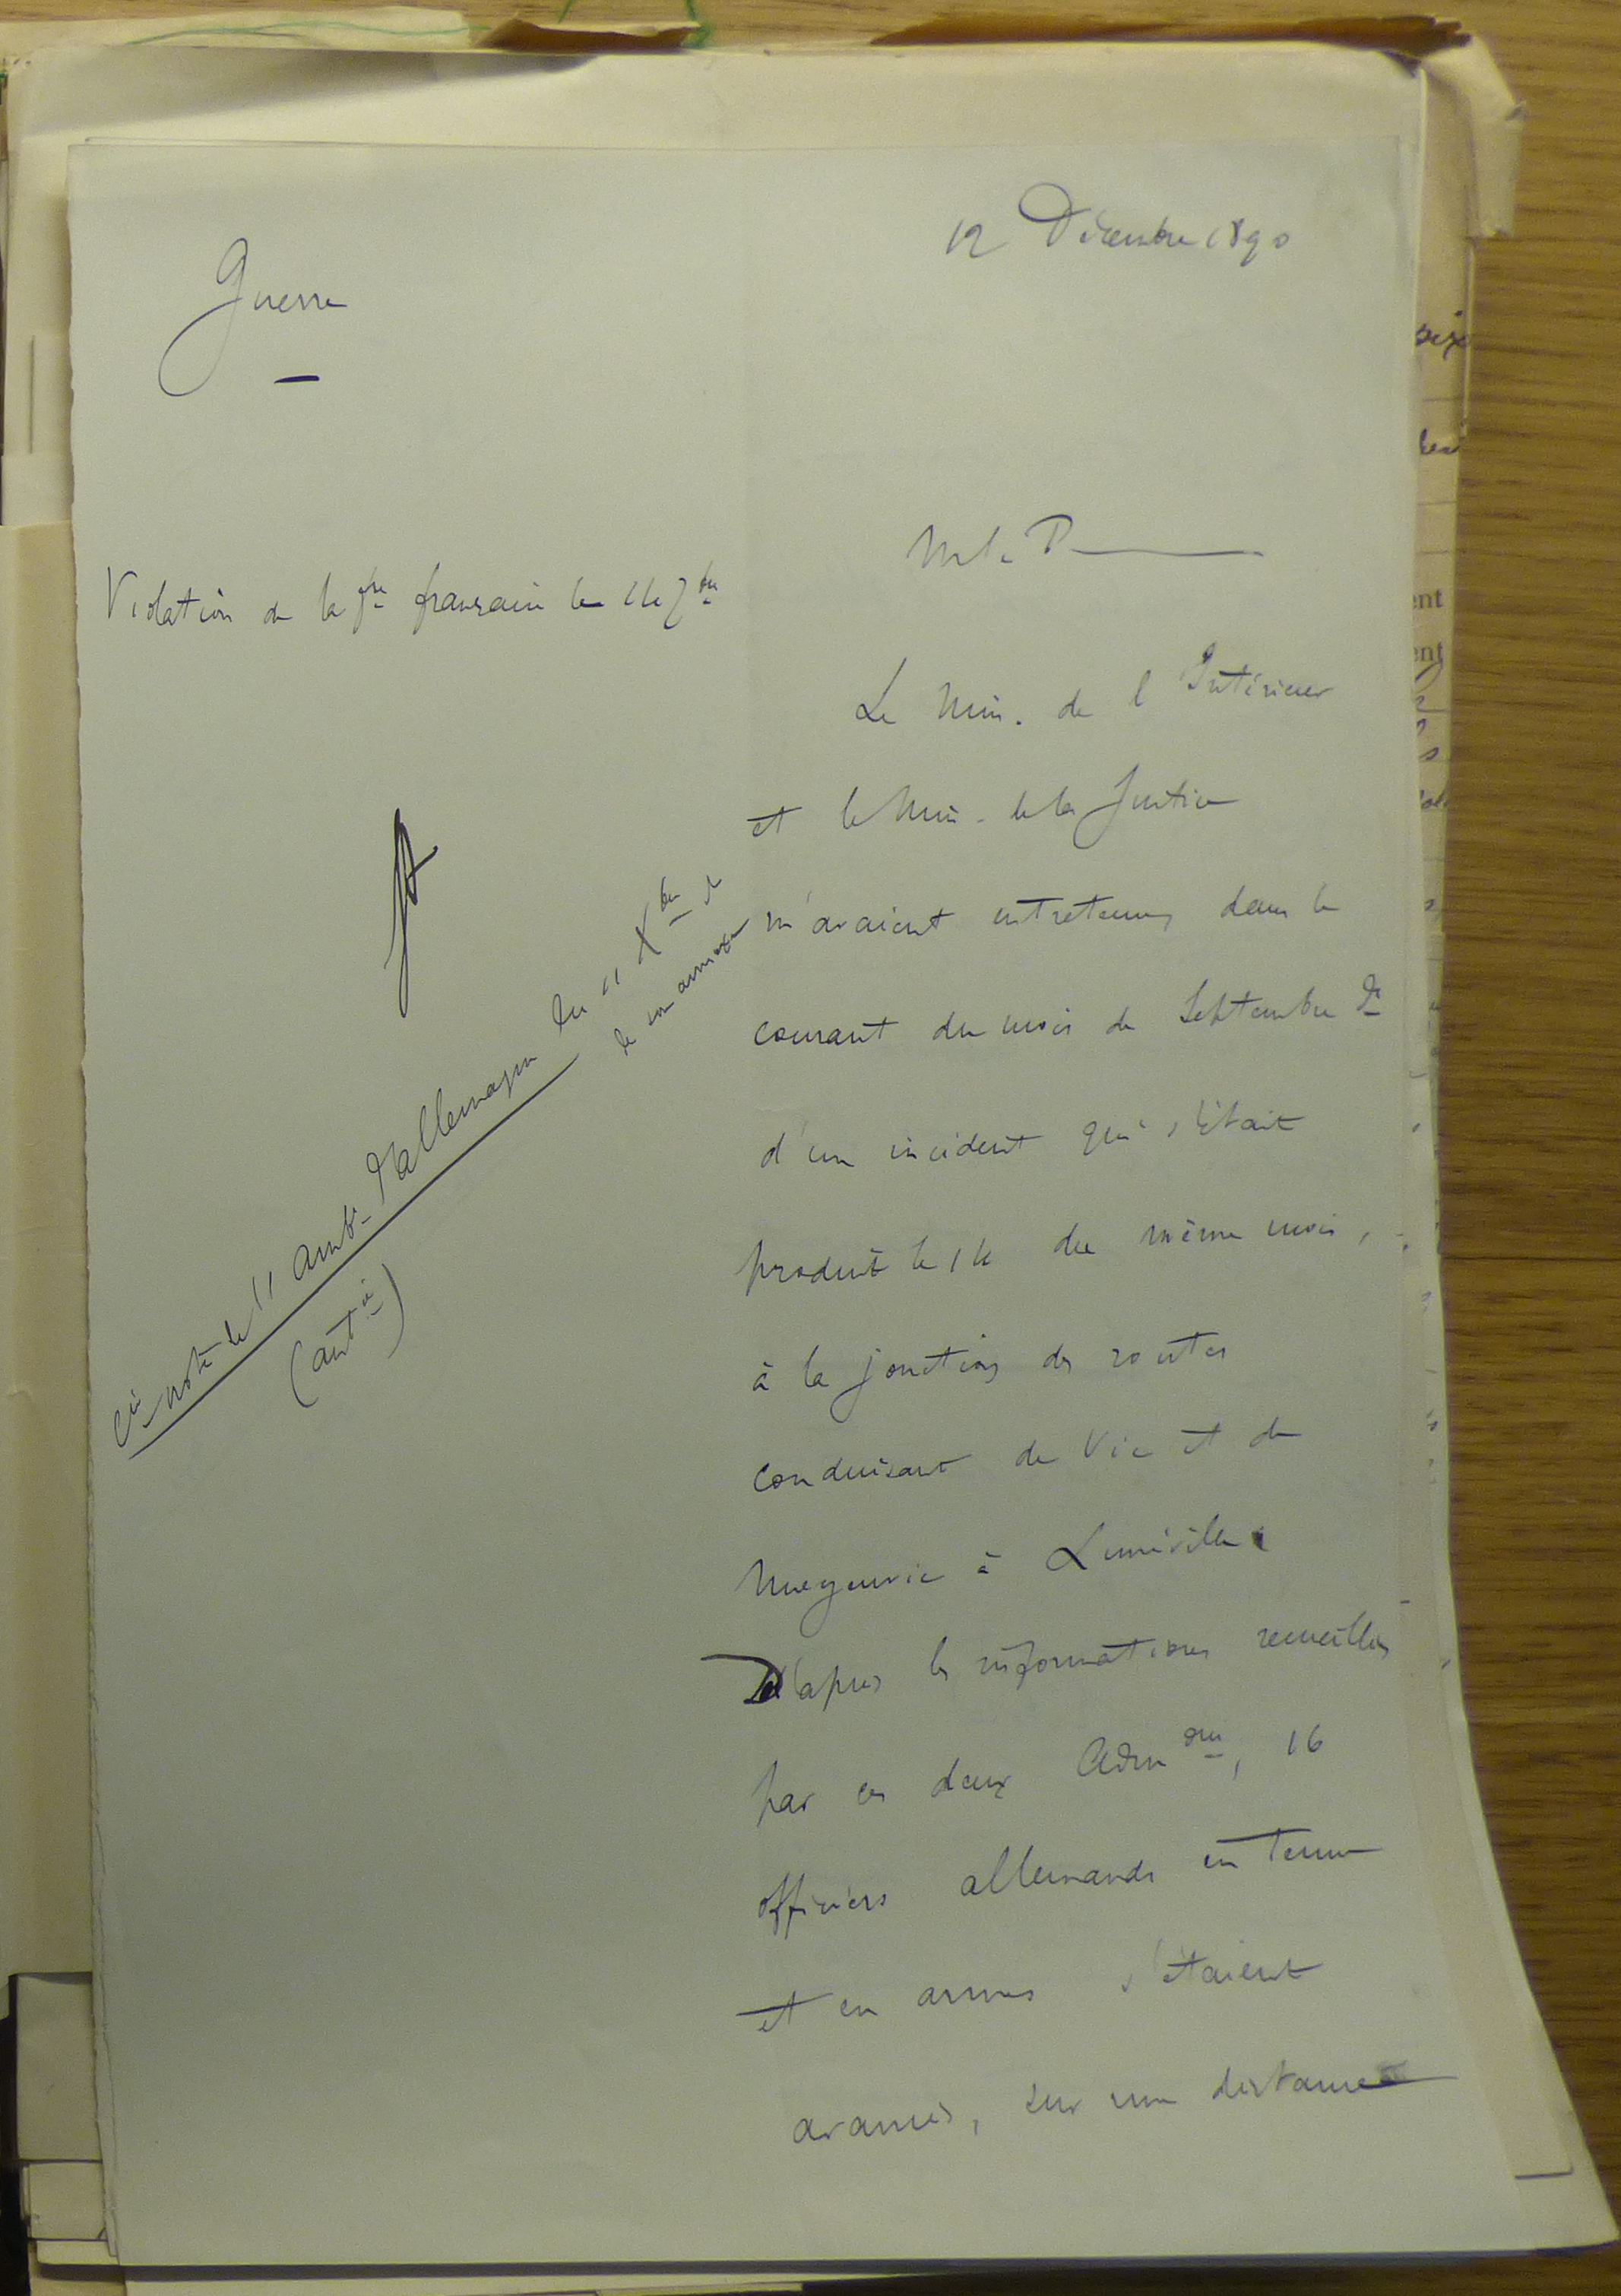 12 Décembre 1890
Guerre
Violation de la fre française le 14 7bre
M le P
Le Min. de l'Intérieur
et le Min. de la Justice
m'avaient entretenu, dans le
courant du mois de Septembre dr
d'un incident qui s'était
produit le 14 du même mois,
à la jonction des routes
conduisant de Vic et de
Moyenvic à Lunéville.
D'après les informations recueillies
par ces deux Admons, 16
officiers allemands en tenue
et en armes s'étaient
avancés, sur une distance
Ci note de l'Amb. d'Allemagne du 11 Xbre et
de son annexe